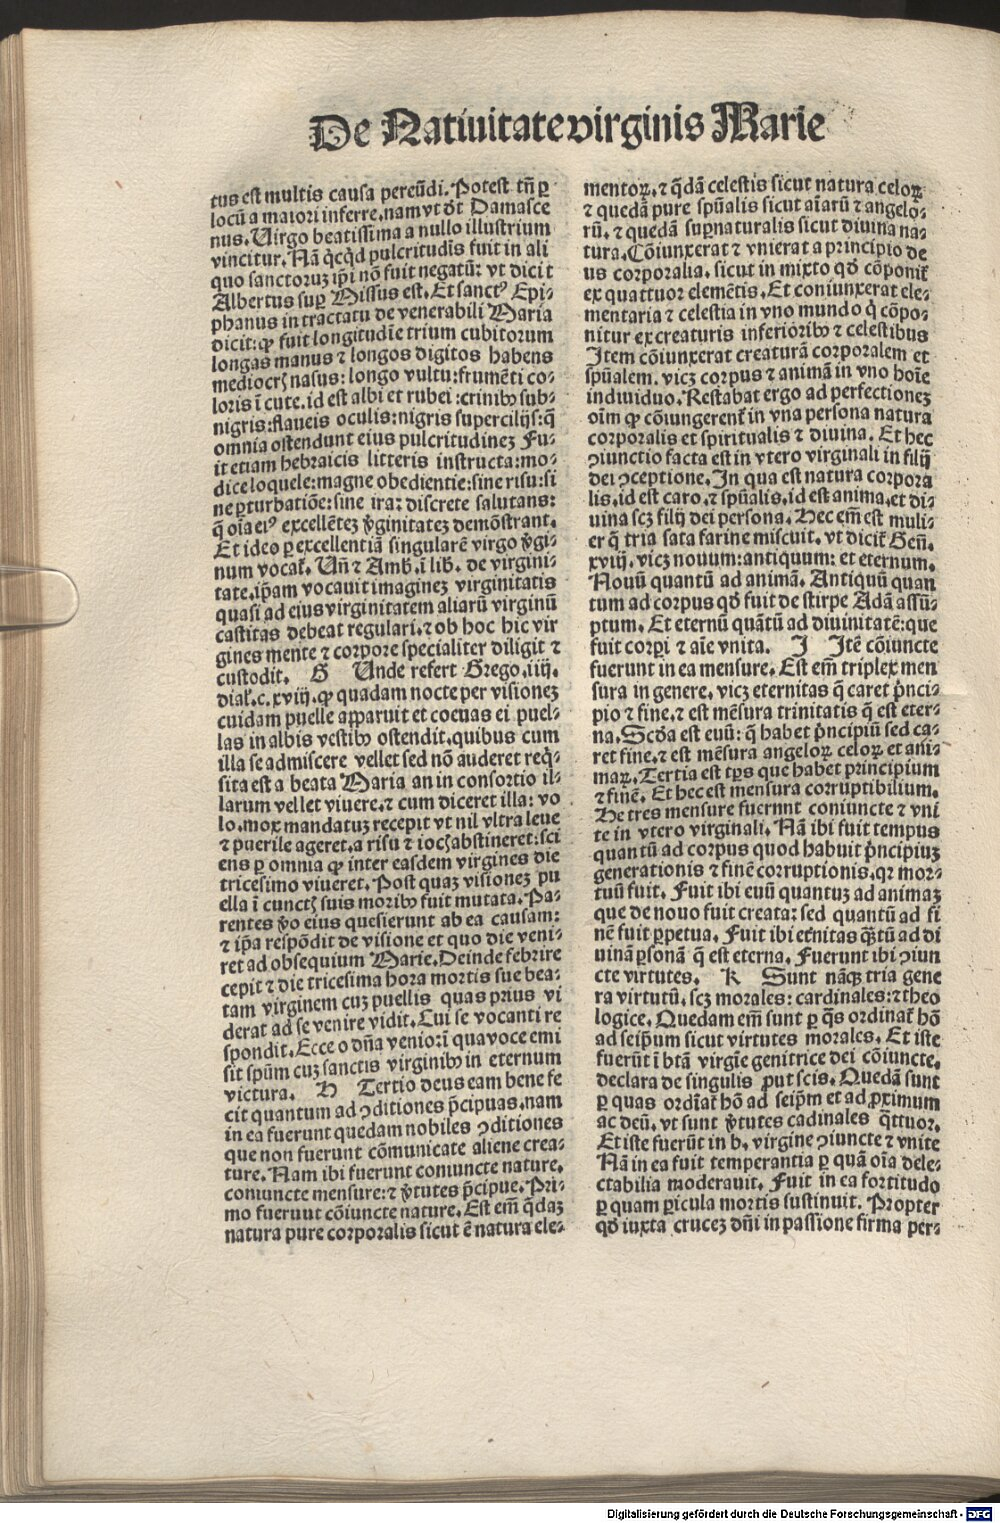 De Natiuitate virginis Marie
tus est multis causa pereūdi. Potest tñ ꝑ
locū a maiori inferre, nam vt dt Damasce
nus. Uirgo beatissima a nullo illustrium
vincitur. Nā q̇cq̇d pulcritudis fuit in ali
quo sanctoruꝫ ip̄i nō fuit negatū: vt dicit
Albertus suꝑ Missus est. Et sanctꝰ Epi⸗
phanus in tractatu de venerabili Maria
dicit: ꝙ fuit longitudīe trium cubitorum
longas manus ⁊ longos digitos habens
mediocrꝭ nasus: longo vultu: frumēti co⸗
loris ī cute. id est albi et rubei: crinibꝰ sub⸗
nigris: flaueis oculis: nigris supercilijs: q̄
omnia ostendunt eius pulcritudineꝫ Fu⸗
it etiam hebraicis litteris instructa: mo⸗
dice loquele: magne obedientie: sine risu: si
ne ꝑturbatiōe: sine ira: discrete salutans:
q̄ oīa eiꝰ excellēteꝫ v̓ginitateꝫ demōstrant.
Et ideo ꝑ excellentiā singularē virgo v̓gi⸗
num vocat̄. Uñ ⁊ Amb. ī lib. de virgini⸗
tate. ip̄am vocauit imagineꝫ virginitatis
quasi ad eius virginitatem aliarū virginū
castitas debeat regulari. ⁊ ob hoc hic vir
gines mente ⁊ corpore specialiter diligit ⁊
custodit. G Unde refert Grego. iiij.
dial̄. c. xviij. ꝙ quadam nocte per visioneꝫ
cuidam puelle apparuit et coeuas ei puel⸗
las in albis vestibꝰ ostendit. quibus cum
illa se admiscere vellet sed nō auderet req̇⸗
sita est a beata Maria an in consortio il⸗
larum vellet viuere. ⁊ cum diceret illa: vo
lo. mox mandatuꝫ recepit vt nil vltra leue
⁊ puerile ageret. a risu ⁊ iocꝭ abstineret: sci
ens ꝑ omnia ꝙ inter easdem virgines die
tricesimo viueret. Post quaꝫ visioneꝫ pu
ella ī cunctꝭ suis moribꝰ fuit mutata. Pa⸗
rentes v̓o eius quesierunt ab ea causam:
⁊ ip̄a respōdit de visione et quo die veni⸗
ret ad obsequium Marie. Deinde febrire
cepit ⁊ die tricesima hora mortis sue bea⸗
tam virginem cuꝫ puellis quas prius vi
derat ad se venire vidit. Cui se vocanti re
spondit. Ecce o dña venio: ī qua voce emi
sit spūm cuꝫ sanctis virginibꝰ in eternum
victura. H Tertio deus eam bene fe
cit quantum ad ꝯditiones p̄cipuas. nam
in ea fuerunt quedam nobiles ꝯditiones
que non fuerunt cōmunicate aliene crea⸗
ture. Nam ibi fuerunt coniuncte nature.
coniuncte mensure: ⁊ v̓tutes p̄cipue. Pri⸗
mo fueruut cōiuncte nature. Est em̄ q̄daꝫ
natura pure corporalis sicut ē natura ele⸗
mentoꝝ. ⁊ q̄dā celestis sicut natura celoꝝ
⁊ quedā pure spūalis sicut aīarū ⁊ angelo⸗
rū. ⁊ quedā suꝑnaturalis sicut diuina na⸗
tura. Cōiunxerat ⁊ vnierat a principio de
us corporalia. sicut in mixto qd̓ cōponit̄
ex quattuor elemētis. Et coniunxerat ele⸗
mentaria ⁊ celestia in vno mundo q̇ cōpo⸗
nitur ex creaturis inferioribꝰ ⁊ celestibus
Item cōiunxerat creaturā corporalem et
spūalem. vicꝫ corpus ⁊ animā in vno hoīe
indiuiduo. Restabat ergo ad perfectioneꝫ
oīm ꝙ cōiungerent̄ in vna persona natura
corporalis et spiritualis ⁊ diuina. Et hec
ꝯiunctio facta est in vtero virginali in filij
dei ꝯceptione. In qua est natura corpora
lis. id est caro. ⁊ spūalis. id est anima. et di⸗
uina scꝫ filij dei persona. Hec em̄ est muli⸗
er q̄ tria sata farine miscuit. vt dicit̄ Geñ.
xviij. vicꝫ nouum: antiquum: et eternum.
Nouū quantū ad animā. Antiquū quan
tum ad corpus qd̓ fuit de stirpe Adā assū⸗
ptum. Et eternū quātū ad diuinitatē: que
fuit corꝑi ⁊ aīe vnita. I Itē cōiuncte
fuerunt in ea mensure. Est em̄ triplex men
sura in genere. vicꝫ eternitas q̄ caret p̓nci⸗
pio ⁊ fine. ⁊ est mēsura trinitatis q̄ est eter⸗
na. Scḋa est euū: q̄ habet p̓ncipiū sed ca⸗
ret fine. ⁊ est mēsura angeloꝝ celoꝝ et ani⸗
maꝝ. Tertia est tp̄s que habet principium
⁊ finē. Et hec est mensura corruptibilium.
He tres mensure fuernnt coniuncte ⁊ vni
te in vtero virginali. Nā ibi fuit tempus
quantū ad corpus quod habuit p̓ncipiuꝫ
generationis ⁊ finē corruptionis. qꝛ mor⸗
tuū fuit. Fuit ibi euū quantuꝫ ad animaꝫ
que de nouo fuit creata: sed quantū ad fi
nē fuit ꝑpetua. Fuit ibi et̓nitas qꝫtū ad di
uinā ꝑsonā q̄ est eterna. Fuerunt ibi ꝯiun
cte virtutes. K Sunt nāqꝫ tria gene
ra virtutū. scꝫ morales: cardinales: ⁊ theo
logice. Quedam em̄ sunt ꝑ q̄s ordinat̄ hō
ad seip̄um sicut virtutes morales. Et iste
fuerūt ī btā virgīe genitrice dei cōiuncte.
declara de singulis ꝓut scis. Quedā sunt
ꝑ quas ordīat̄ hō ad seip̄m et ad ꝓximum
ac deū. vt sunt v̓tutes cadinales q̄ttuor.
Et iste fuerūt in b. virgine ꝯiuncte ⁊ vnite
Nā in ea fuit temperantia ꝑ quā oīa dele⸗
ctabilia moderauit. Fuit in ea fortitudo
ꝑ quam ꝑicula mortis sustinuit. Propter
qd̓ iuxta cruceꝫ dñi in passione firma per⸗
Digitalisierung gefördert durch die Deutsche Forschungsgemeinschaft - DFG